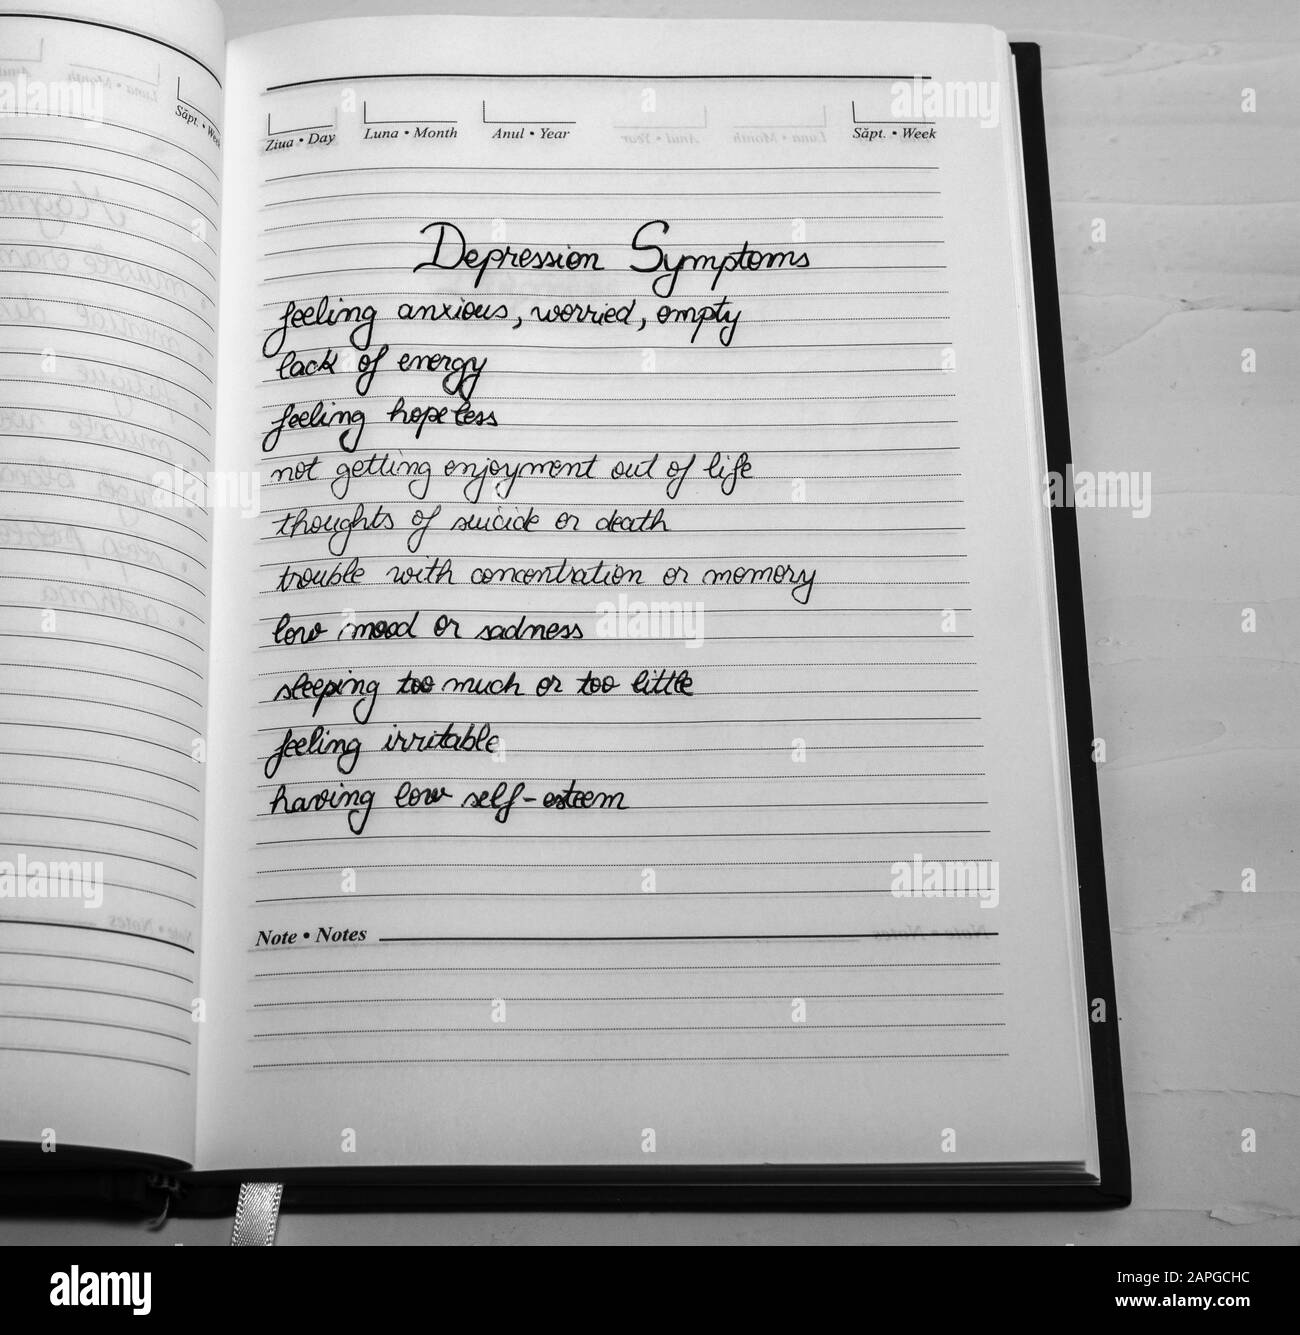 Ziua • Day Luna • Month Anul • Year Săpt. • Week
Depression Symptoms
feeling anxious, worried, empty
lack of energy
feeling hopeless
not getting enjoyment out of life
thoughts of suicide or death
trouble with concentration or memory
low mood or sadness
sleeping too much or too little
feeling irritable
having low self-esteem
Note • Notes
alamy
Image ID: 2APGCHC
www.alamy.com